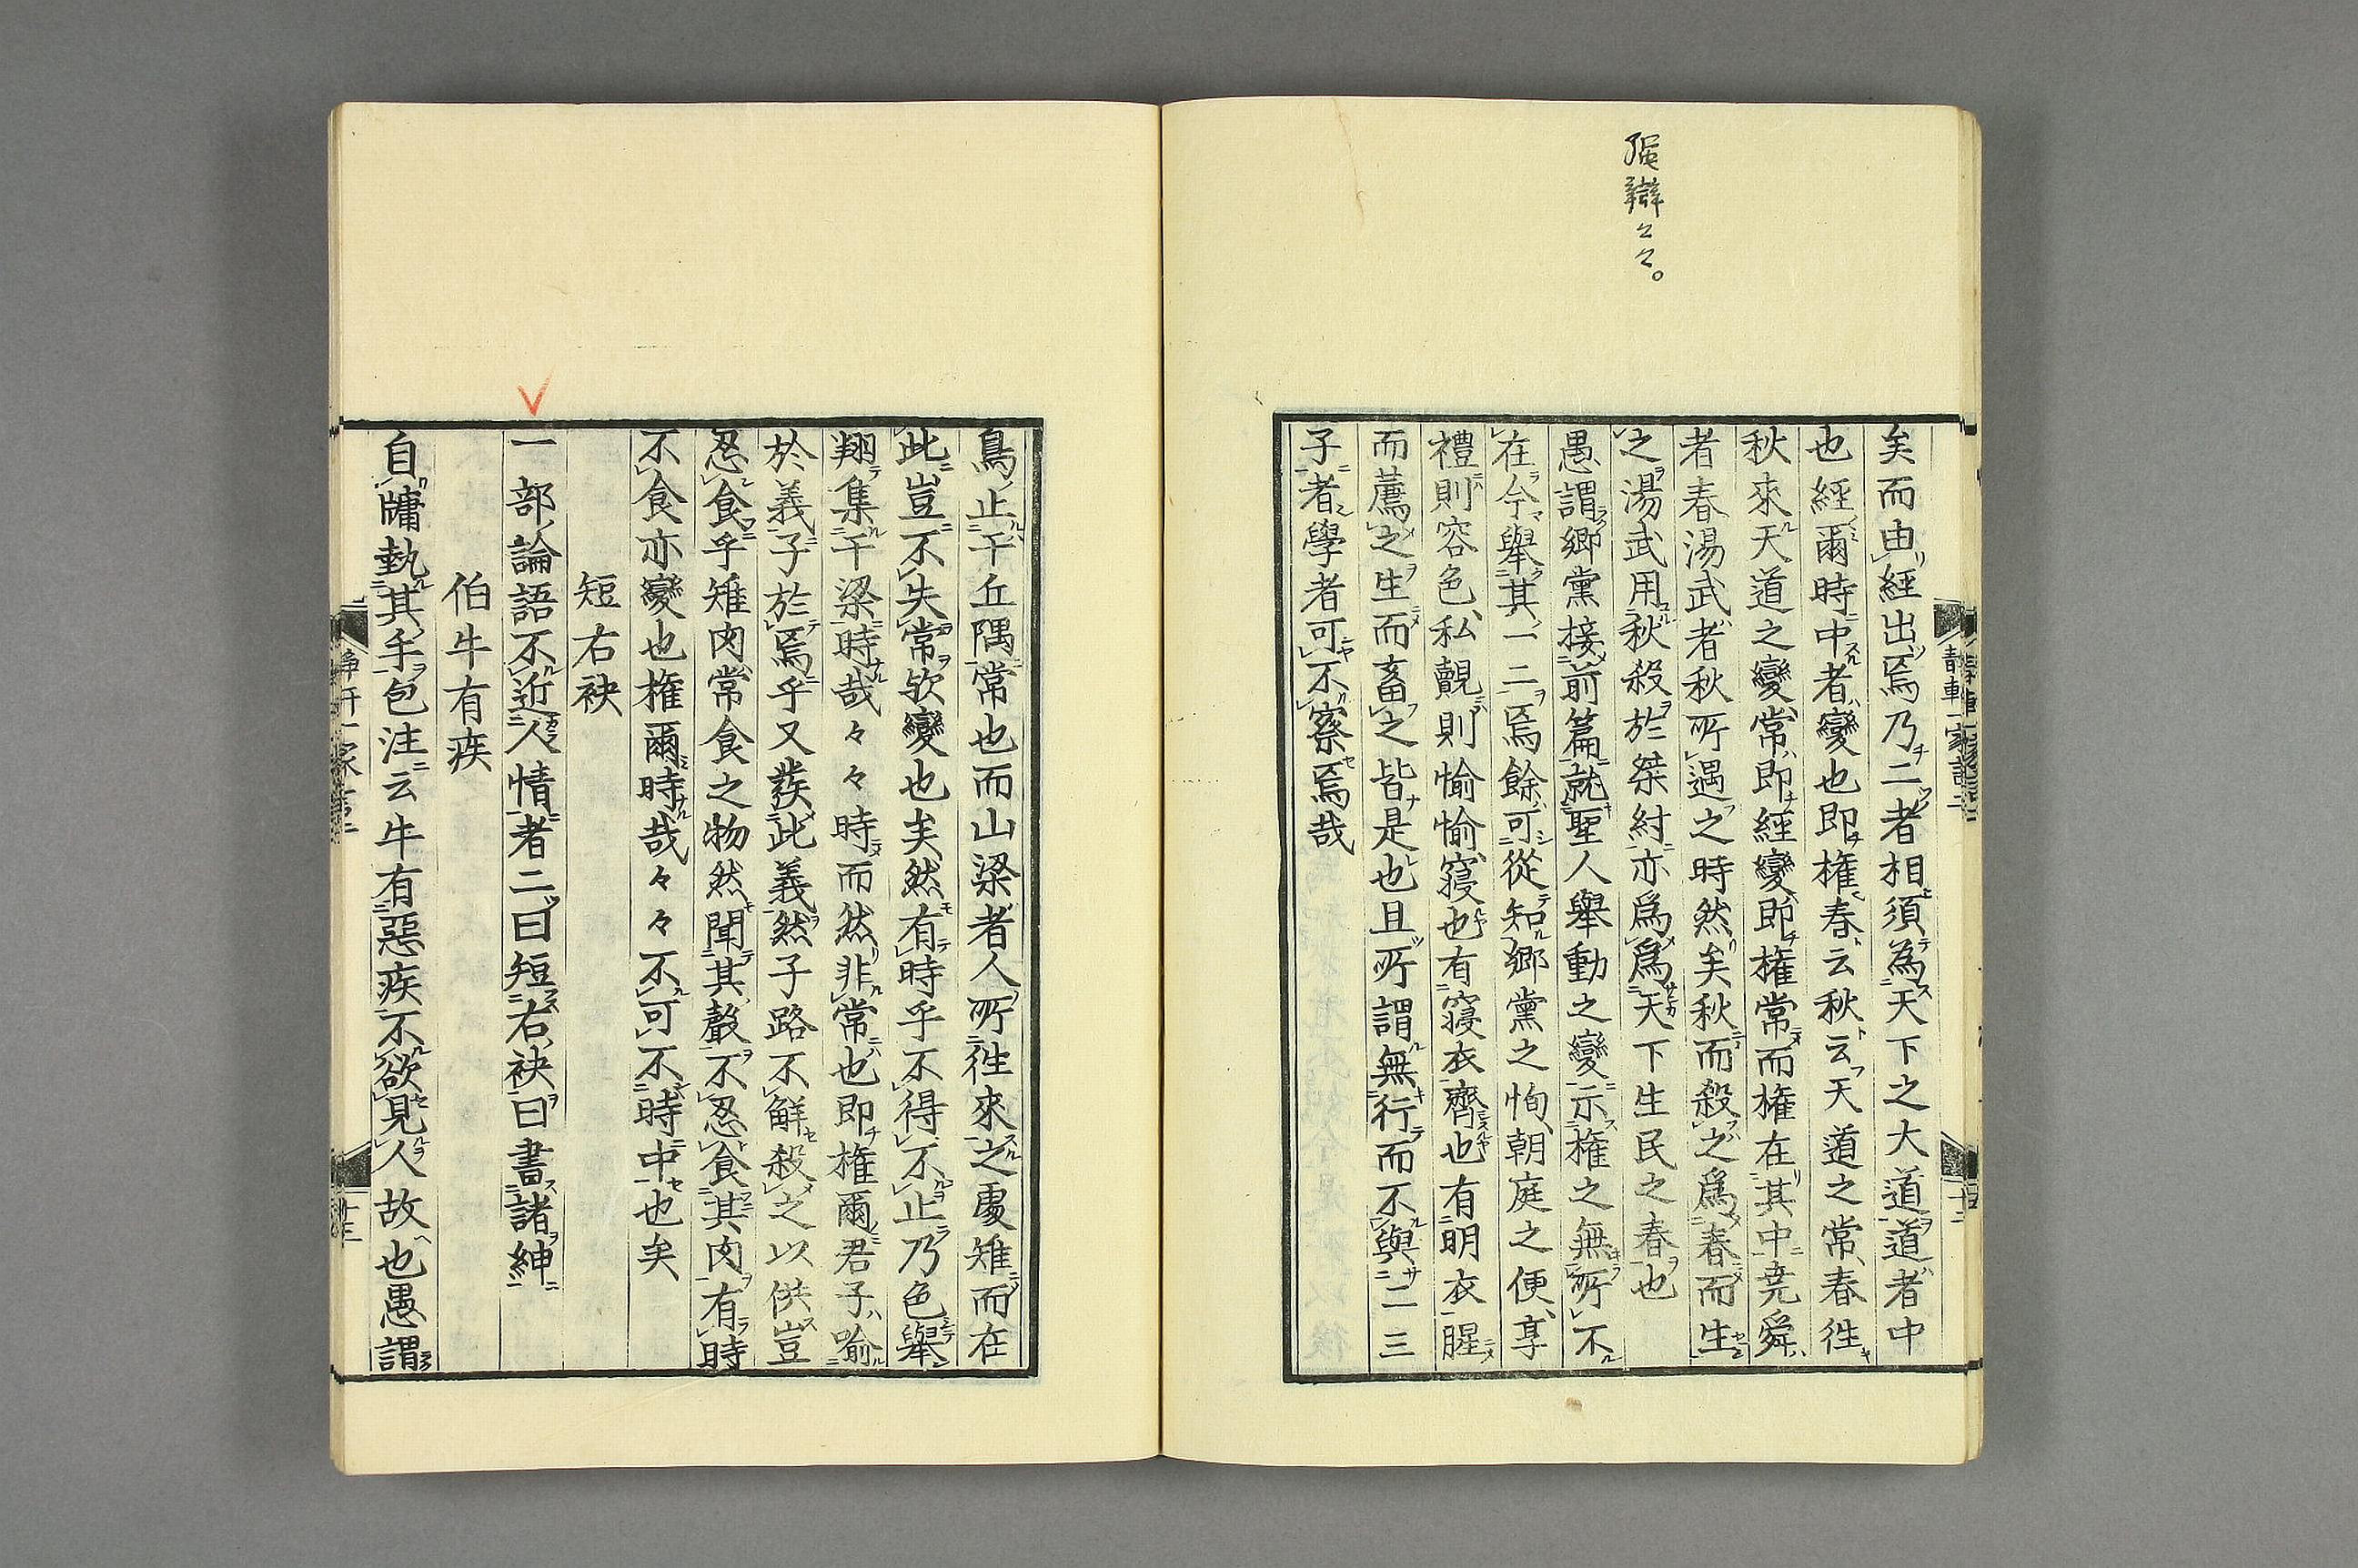 強辯々々。
矣而由經出焉乃二者相須為天下之大道道者中
也經爾時中者變也即権春云秋云天道之常春徃
秋來天道之變常即經變即権常而権在其中尭舜
者春湯武者秋所遇之時然矣秋而殺之爲春而生
之湯武用秋殺於桀紂亦爲爲天下生民之春也
愚謂鄉黨接前篇就聖人舉動之變示権之無所不
在今舉其一二焉餘可從知鄉黨之恂朝庭之便享
禮則容色私覿則愉愉寢也有寢衣齊也有明衣腥
而薦之生而畜之皆是也且所謂無行而不與二三
子者學者可不察焉哉
鳥止于丘隅常也而山梁者人所徃來之處雉而在
此豈不失常欤變也矣然有時乎不得不止乃色舉
翔集于梁時哉々々時而然非常也即権爾君子喻
於義子於焉乎又蔟此義然子路不鮮殺之以供豈
忍食乎雉肉常食之物然聞其聲不忍食其肉有時
不食亦變也権爾時哉々々不可不時中也矣
短右袂
一部論語不近人情者二曰短右袂曰書諸紳
伯牛有疾
自牖執其手包注云牛有惡疾不欲見人故也愚謂